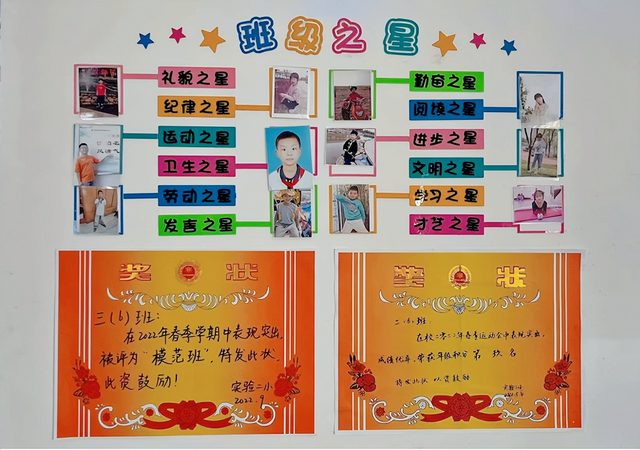 班级之星
礼貌之星
纪律之星
运动之星
卫生之星
劳动之星
发言之星
勤奋之星
阅读之星
进步之星
文明之星
学习之星
才艺之星
奖状
三(6)班:
在2022年春季学期中表现突出,
被评为“模范班”,特发此状,
此资鼓励!
实验二小
2022.9
奖状
二.6.班:
在校二〇二二年春季运动会中表现突出,
成绩优异,荣获年级积分 第 玖 名
特发此状 以资鼓励